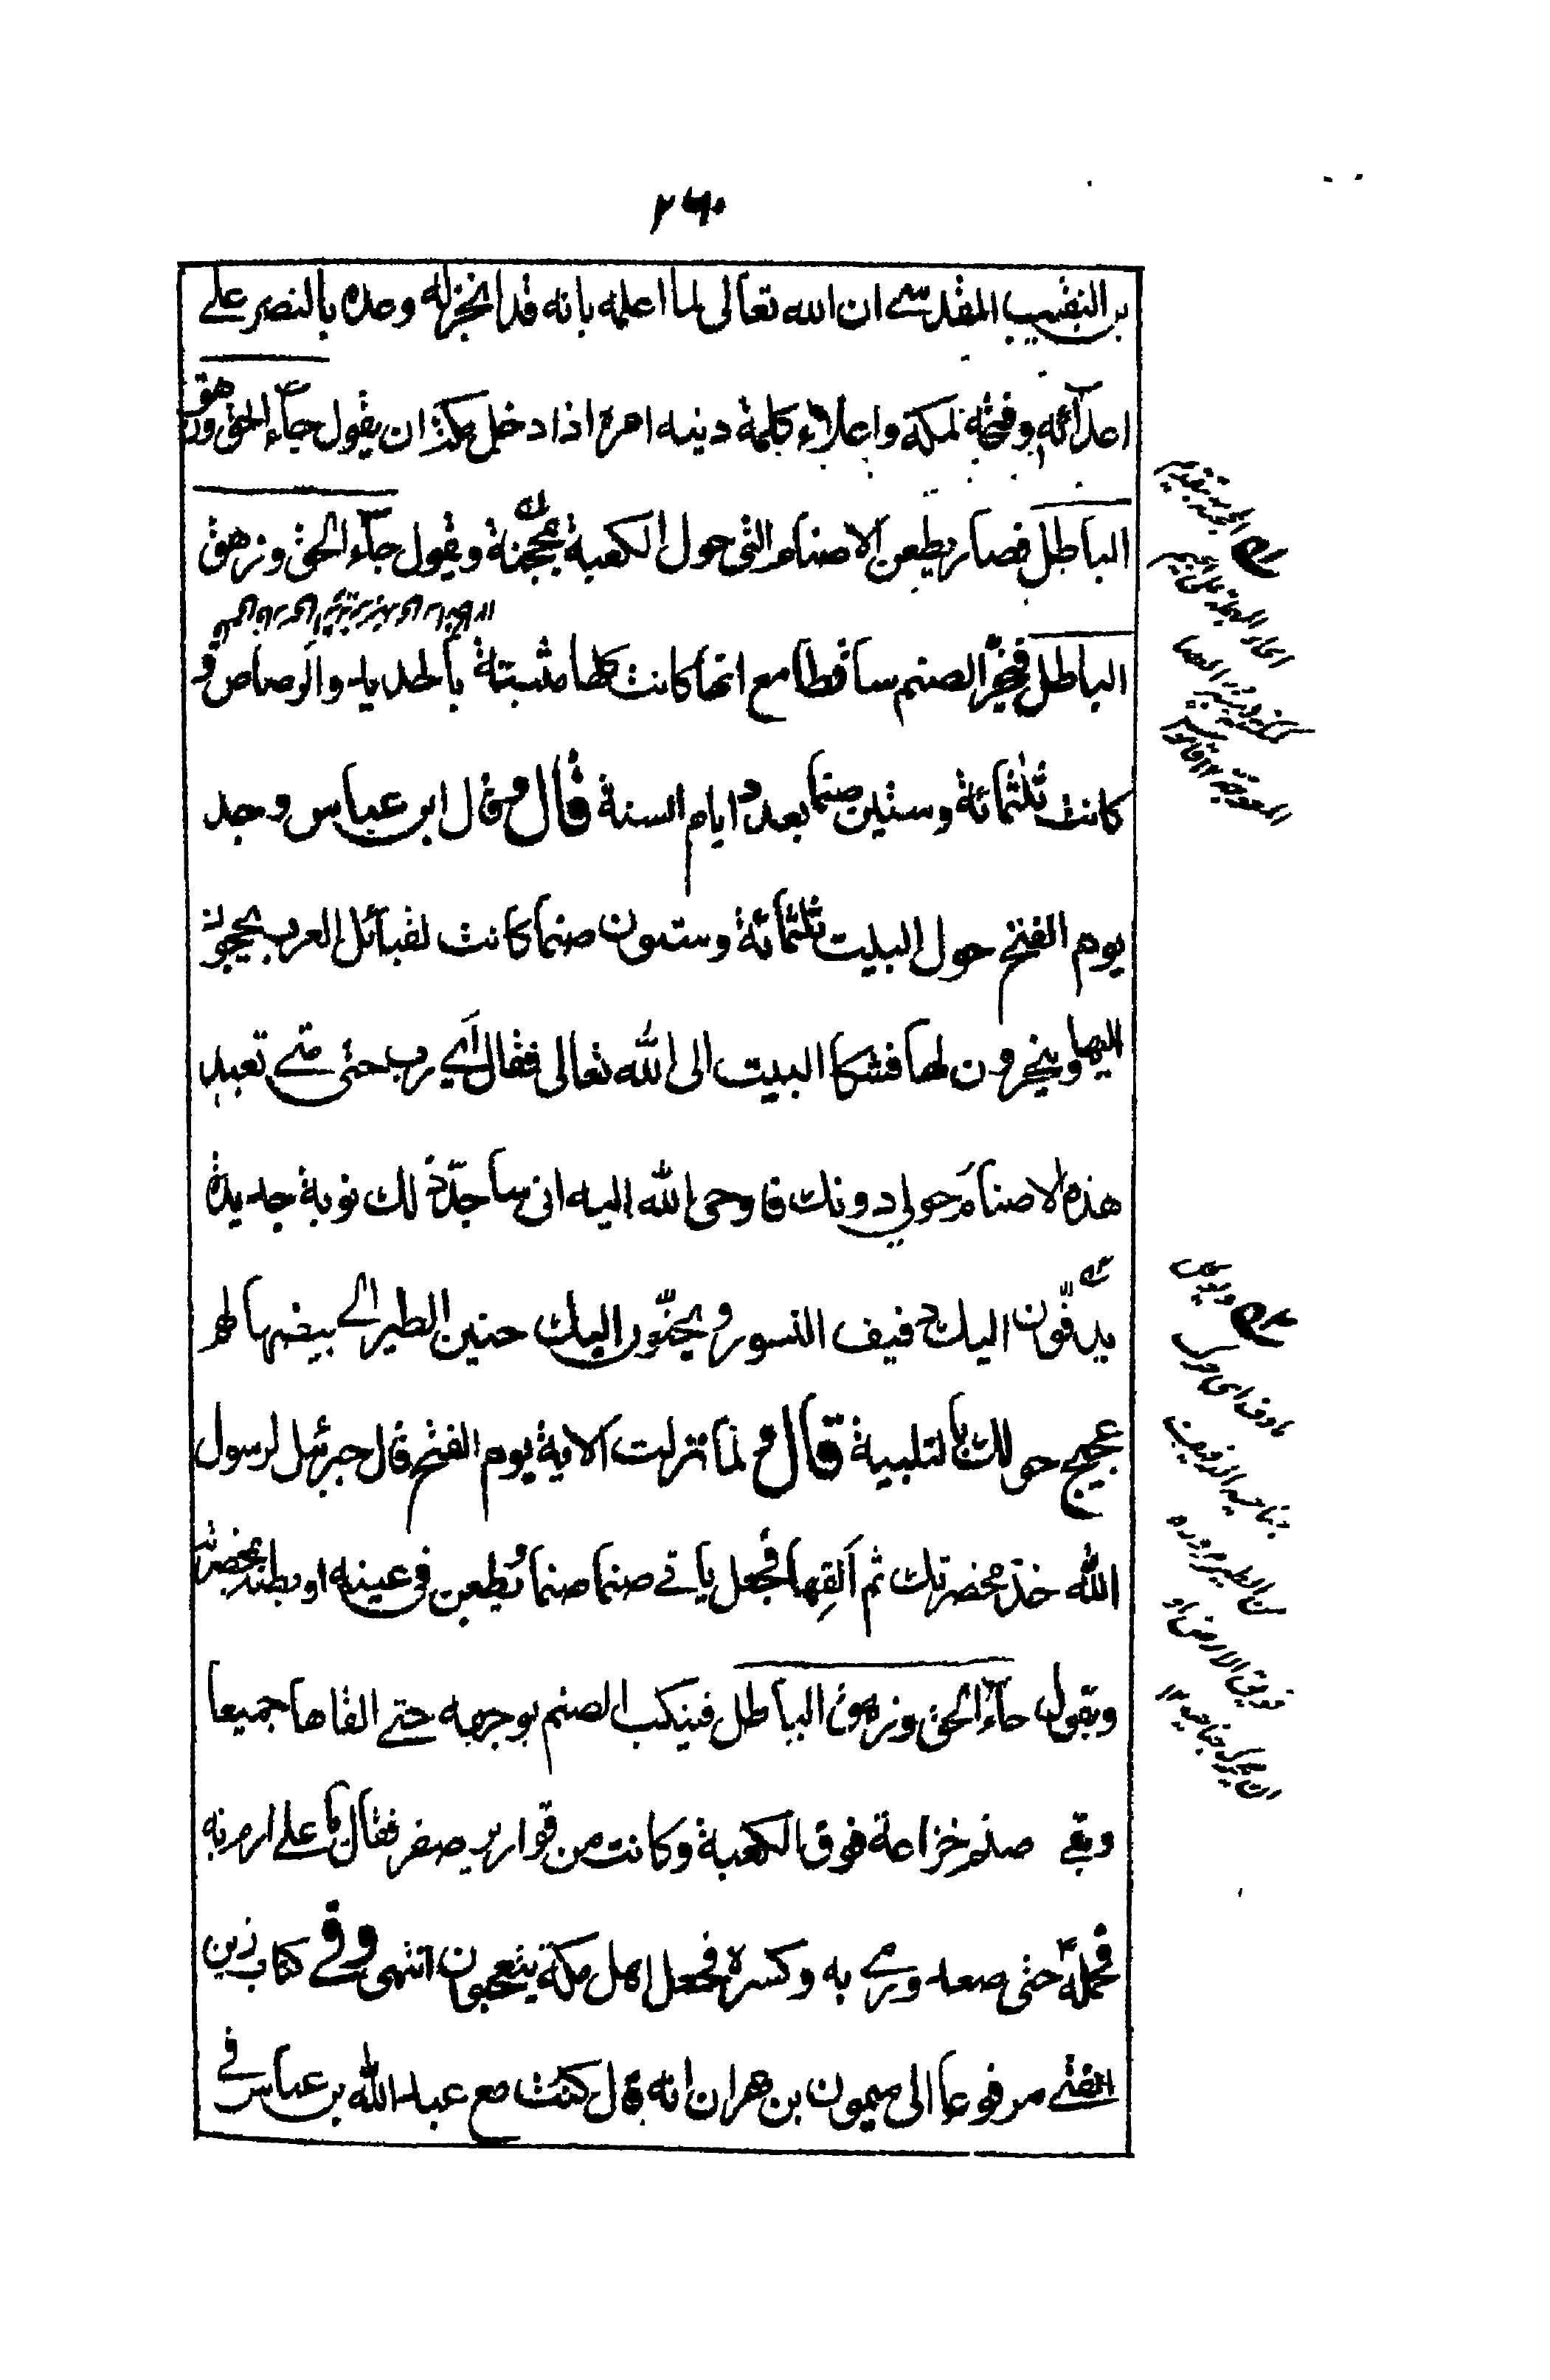 ٢٦٠
بن النقيب المقدسے ان الله تعالى لما اعلمه بانه قد انجز له وعده بالنصر علے
اعدآئه وفتحه لمكة واعلاء كلمة دينه امره اذا دخل مكة ان يقول جآء الحق وزهق
الباطل فصار يطعن الاصنام التى حول الكعبة بمحجنة ويقول جآء الحق وزهق
الباطل فيخرّ الصنم ساقطا مع انها كانت كلها مثبتة بالحديد والرصاص و
كانت ثلثمائة وستين صنما بعدد ايام السنة قال وقال ابن عباس وجد
يوم الفتح حول البيت ثلثمائة وستون صنما كانت لقبائل العرب يحجون
اليها وينحرون لها فشكا البيت الى الله تعالى فقال اَي رب حتى متے تعبد
هذه الاصنام حولي دونك فاوحى الله اليه انى ساجدّد لك نوبة جديدة
يدفّون اليك دفيف النسور ويحنّون اليك حنين الطير الے بيضها لهم
عجيج حولك بالتلبية قال و لما نزلت الاية يوم الفتح قال جبرئيل لرسول
الله خذ مخصرتك ثم اَلقِها فجعل ياتے صنما صنما و يطعن فى عينه او بطنه بمخصرته
ويقول جآء الحق وزهق الباطل فينكب الصنم بوجهه حتے القاها جميعا
وبقے صنم خزاعة فوق الكعبة وكانت من قوارير صفر فقال يا علے ارم به
فحمله حتى صعد ورمے به وكسره فجعل اهل مكة يتعجبون انتهى وفے كتاب زين
الفتے مرفوعا الى ميمون بن مهران انه قال كنت مع عبد الله بن عباس فے